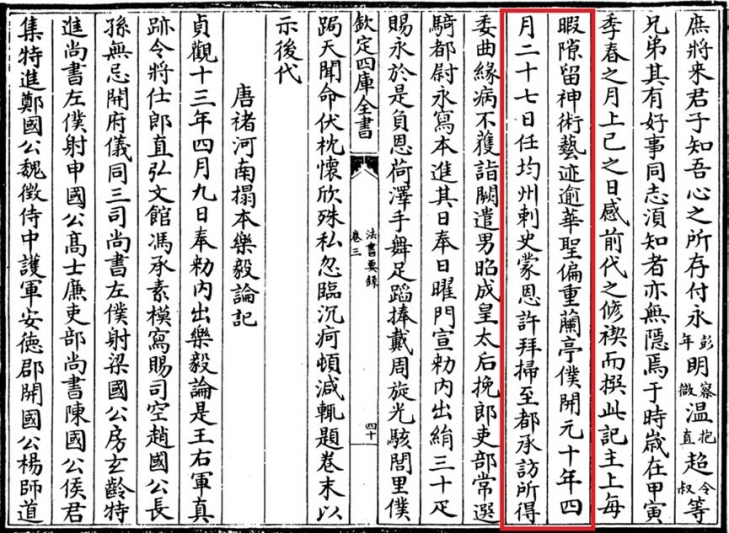 庶將来君子知吾心之所存付永彭年明察微溫抱直超令叔等
兄弟其有好事同志須知者亦無隱焉于時歲在甲寅
季春之月上巳之日感前代之修禊而撰此記主上每
暇隙留神術藝迹逾華聖偏重蘭亭僕開元十年四
月二十七日任均州刺史蒙恩許拜掃至都承訪所得
委曲緣病不獲詣闕遣男昭成皇太后挽郎吏部常選
騎都尉永寫本進其日奉日曜門宣勅内出絹三十疋
賜永於是負恩荷澤手舞足蹈捧戴周旋光駭閭里僕
欽定四庫全書
法書要録
卷三
四十
跼天聞命伏枕懷欣殊私忽臨沉疴頓減輒題卷末以
示後代
唐禇河南搨本樂毅論記
貞觀十三年四月九日奉勅内出樂毅論是王右軍真
跡令將仕郎直弘文館馮承素模寫賜司空趙國公長
孫無忌開府儀同三司尚書左僕射梁國公房玄齡特
進尚書左僕射申國公髙士廉吏部尚書陳國公侯君
集特進鄭國公魏徵侍中護軍安徳郡開國公楊師道